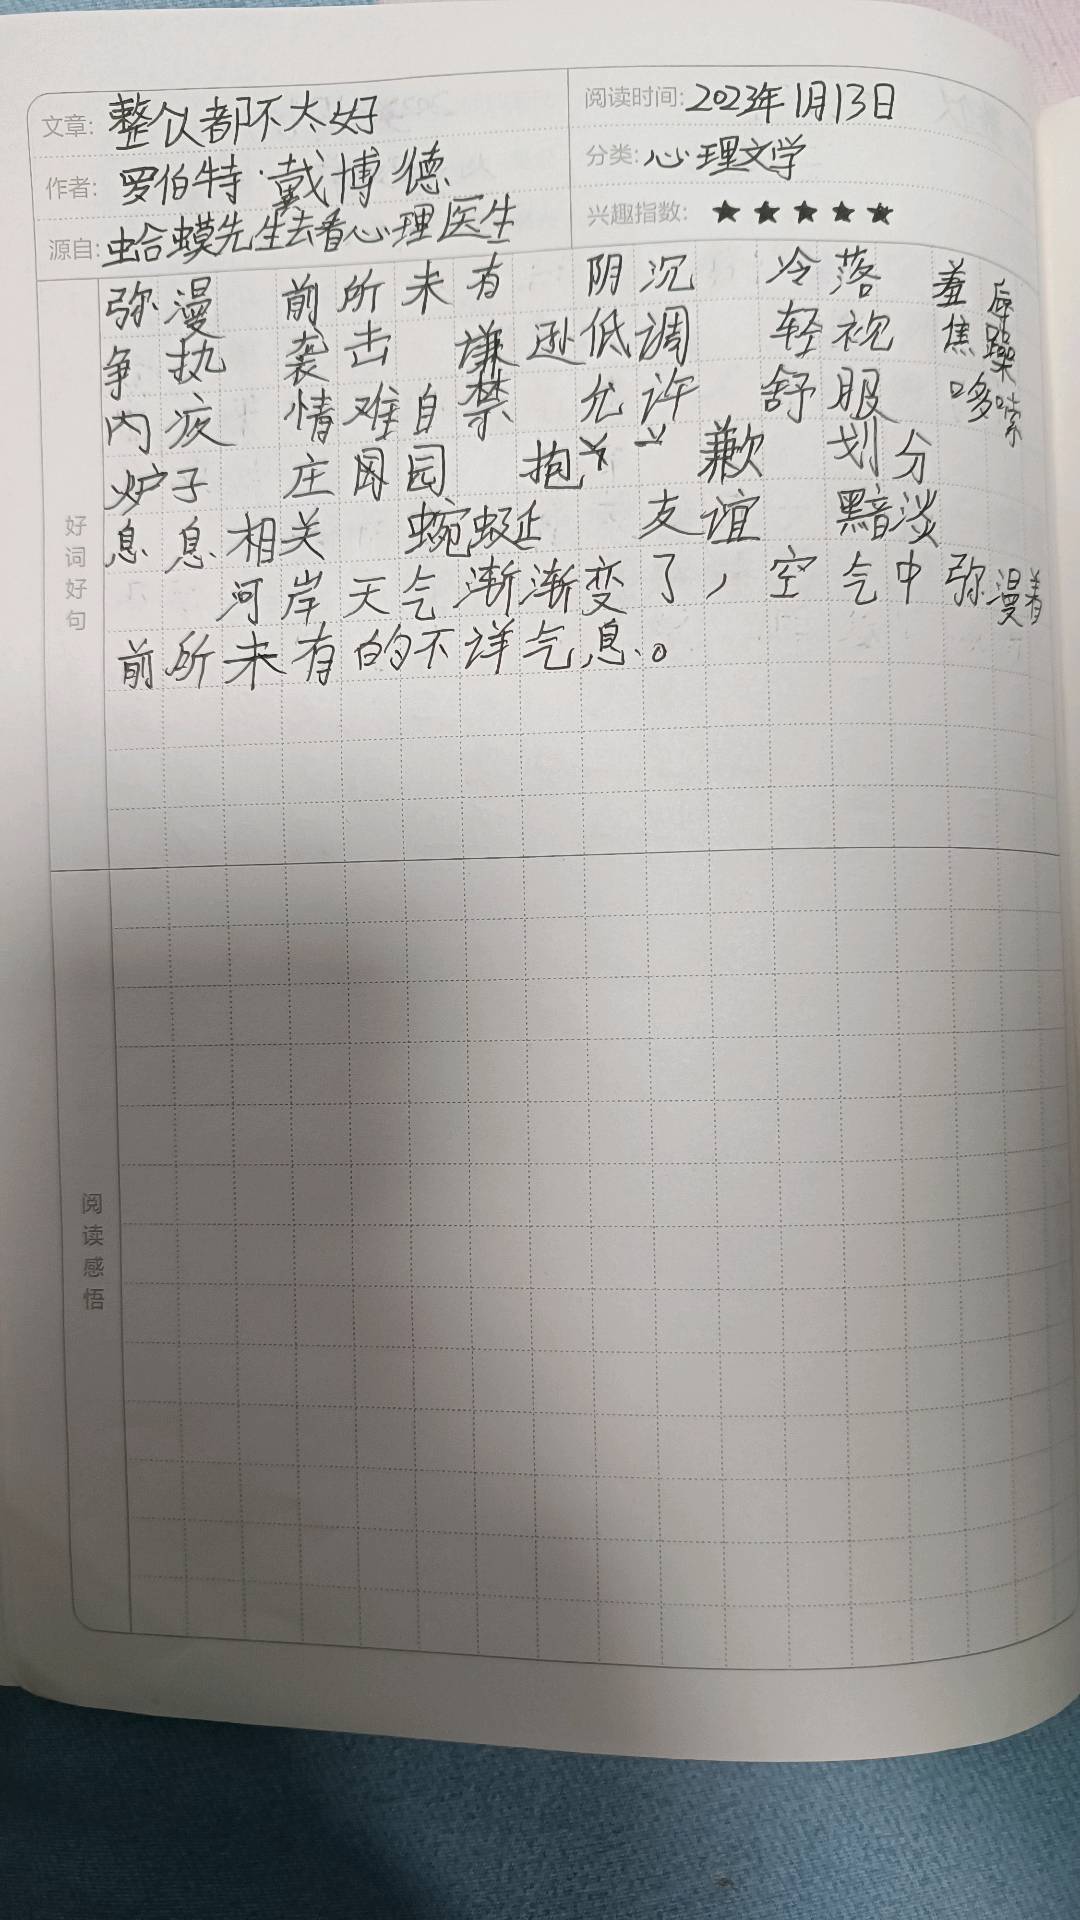 文章: 整个人都不太好
阅读时间: 2023年1月13日
作者: 罗伯特·戴博德
分类: 心理文学
源自: 蛤蟆先生去看心理医生
兴趣指数: ★★★★★
好词好句
弥漫 前所未有 阴沉 冷落 羞辱
争执 袭击 谦逊低调 轻视 焦躁
内疚 情难自禁 允许 舒服 哆嗦
炉子 庄园园 抱 歉 划分
息息相关 蜿蜒 友谊 黯淡
河岸天气渐渐变了，空气中弥漫着
前所未有的不详气息。
阅读感悟